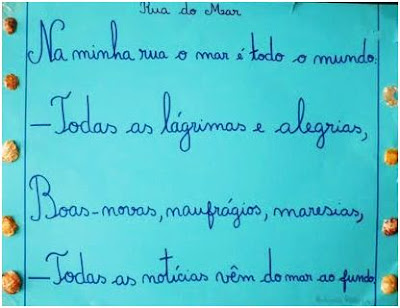 Rua do Mar
Na minha rua o mar é todo o mundo:
—Todas as lágrimas e alegrias,
Boas-novas, naufrágios, maresias,
—Todas as notícias vêm do mar ao fundo.